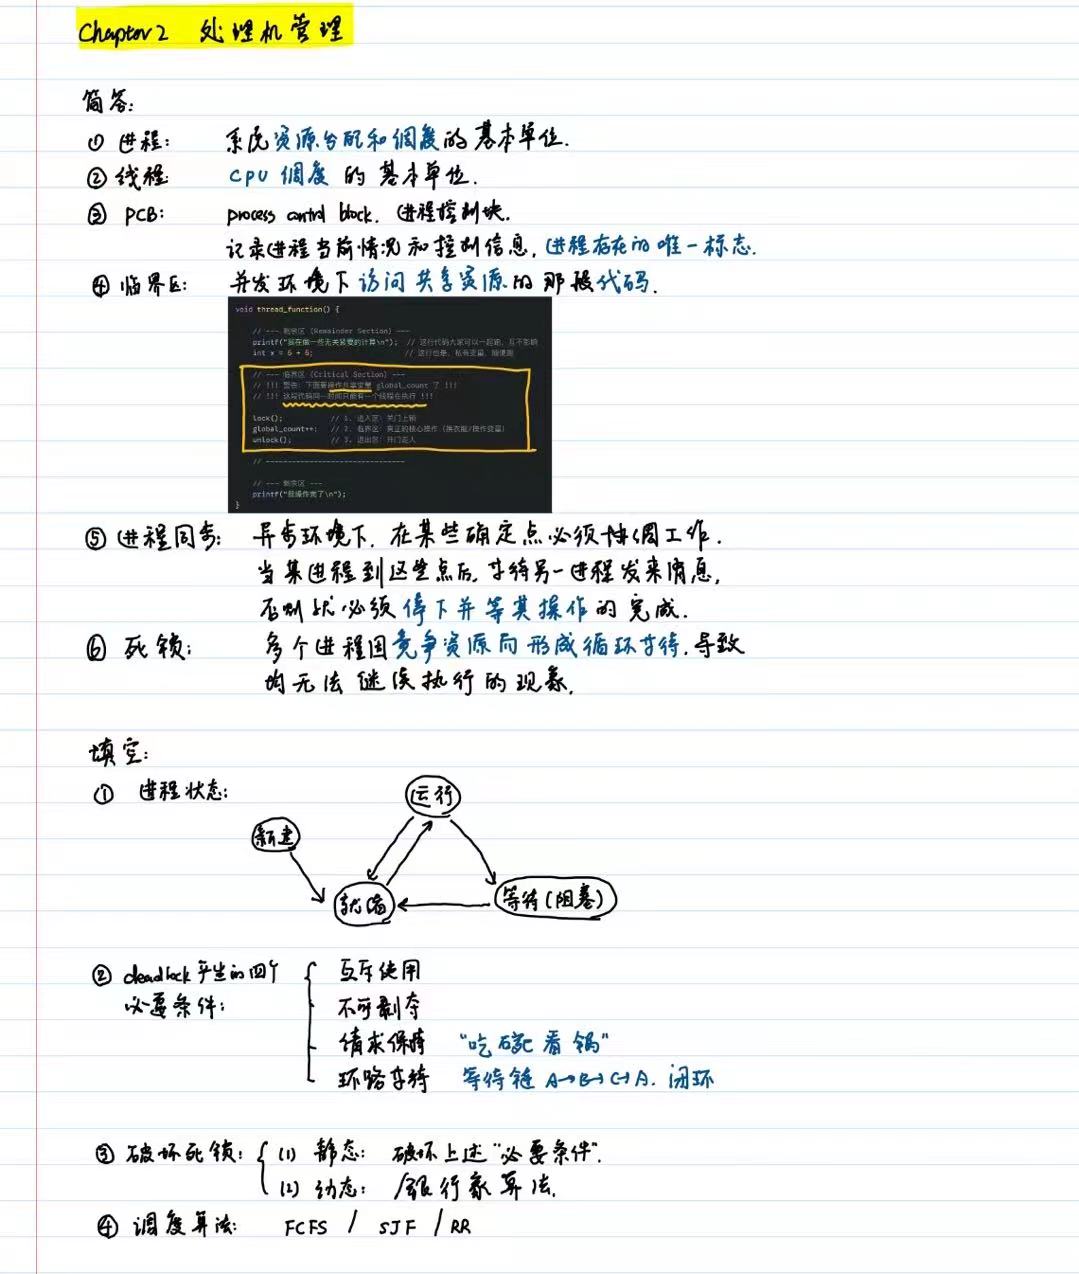 Chapter 2 处理机管理
简答:
① 进程: 系统资源分配和调度的基本单位.
② 线程 CPU 调度 的 基本单位.
③ PCB: process control block. 进程控制块.
记录进程当前情况和控制信息, 进程存在的唯一标志.
④ 临界区: 并发环境下访问共享资源的那段代码.
void thread_function() {
// --- 剩余区 (Remainder Section) ---
printf("我在做一些无关紧要的计算\n"); // 这行代码大家可以一起跑, 互不影响
int x = 6 + 6; // 这行也是, 私有变量, 随便跑
// --- 临界区 (Critical Section) ---
// !!! 警告: 下面要操作共享变量 global_count 了 !!!
// !!! 这段代码同一时间只能有一个线程在执行 !!!
lock(); // 1. 进入区: 关门上锁
global_count++; // 2. 临界区: 真正的核心操作 (换衣服/操作变量)
unlock(); // 3. 退出区: 开门走人
// --------------------------------
// --- 剩余区 ---
printf("我操作完了\n");
}
⑤ 进程同步: 异步环境下, 在某些确定点必须协调工作.
当某进程到这些点后, 等待另一进程发来消息,
否则就必须停下并等其操作的完成.
⑥ 死锁: 多个进程因竞争资源而形成循环等待, 导致
均无法继续执行的现象.
填空:
① 进程状态:
运行
新建
就绪
等待(阻塞)
② deadlock 产生的四个
必要条件:
互斥使用
不可剥夺
请求保持 "吃碗看锅"
环路等待 等待链 A→B→C→A. 闭环
③ 破坏死锁: (1) 静态: 破坏上述"必要条件".
(2) 动态: 银行家算法.
④ 调度算法: FCFS / SJF / RR